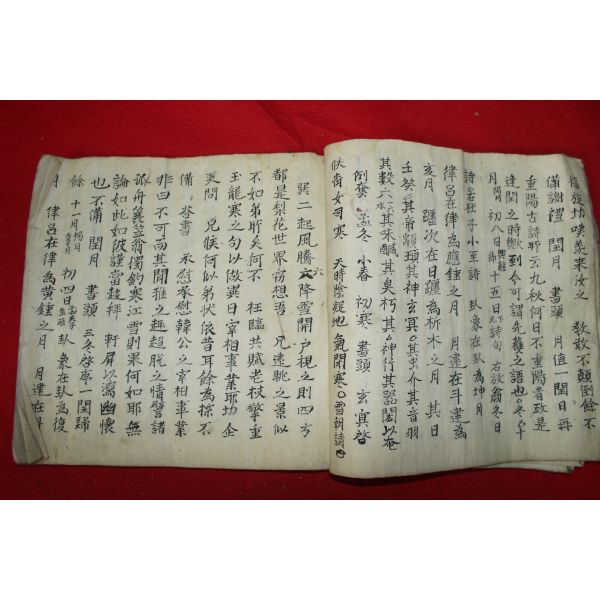 備謝禮 閏月 書頭 月值一閏日再
重陽古詩 六九秋何日不重陽者政是
逢閏之時 到今可謂先獲之語也○冬○十
月 陽月 初八日 十五日下元 詩句 冬日
詩 若杜子小至詩 卦 象在卦為坤月
律呂在律為應鍾之月 月建在斗建為
亥月 躔次在日躔為析木之月 其日
壬癸○其帝顓頊其神玄冥○其虫介其音羽
其數六○其味醎其臭朽其○神行其器閎以奄
倒奪 孟冬 小春 初寒 書頭 玄冥啓
候青女司寒 天時陰凝地氣閉寒○雪朝請
巽二起風騰六降雪開戶視之則四方
都是梨花世界窃想吾 兄遠眺之景似
不如弟 矣何不 枉臨共賦老枝擎重
玉龍寒之句以做冀日宰相事業耶功企
更問 兄候何似弟狀依昔耳餘為探不
備 答書 承慰承慰韓公之宰相事業
非曰不可而其開雅之 超脫之情譬諸
孤舟簑笠翁獨釣寒江雪則果何如耶 無
論如此如彼謹當趁拜 軒屏以瀉幽懷
也不備 閏月 書頭 三冬啓序一閏歸
餘 十一月 暢月 初四日 卦 象在卦為復
月 律呂在律為黃鍾之月 月建在斗